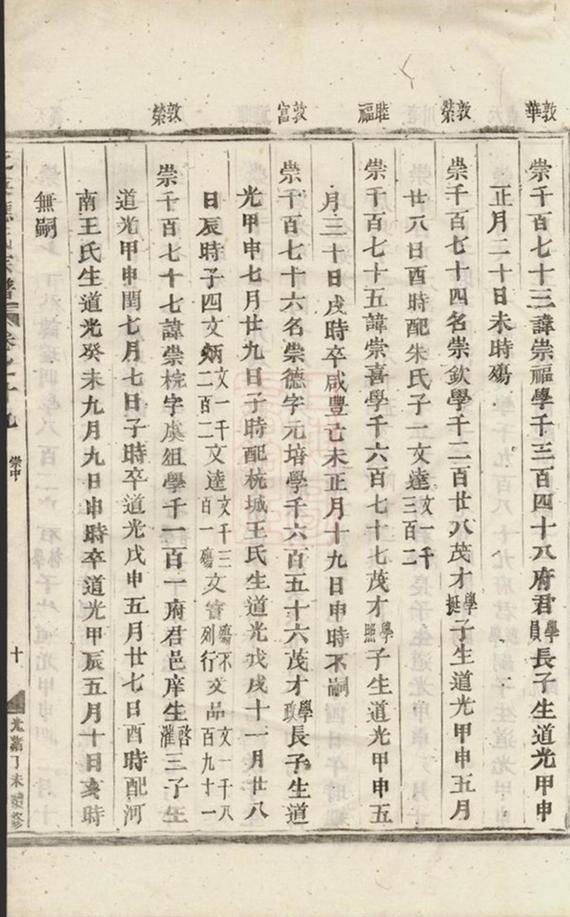 敦華
敦榮
睦福
敦富
敦榮
崇千百七十三諱崇福學千三百四十八府君學員長子生道光甲申
正月二十日未時殤
崇千百七十四名崇欽學千二百廿八茂才學挺子生道光甲申五月
廿八日酉時配朱氏子一文達文一千三百二
崇千百七十五諱崇喜學千六百七十七茂才學照子生道光甲申五
月三十日戌時卒咸豐己未正月十九日申時不嗣
崇千百七十六名崇德字元培學千六百五十六茂才學長子生道
光甲申七月廿九日子時配杭城王氏生道光戊戌十一月廿八
日辰時子四文炳文一千二百二文達文千三百一殤文殤不列行文品文一千八百九十一
崇千百七十七諱崇梡字虞俎學千一百一府君邑庠生啓灌三子生
道光甲申閏七月七日子時卒道光戊申五月廿七日酉時配河
南王氏生道光癸未九月九日申時卒道光甲辰五月十日亥時
無嗣
崇中
十
光緒丁未續修